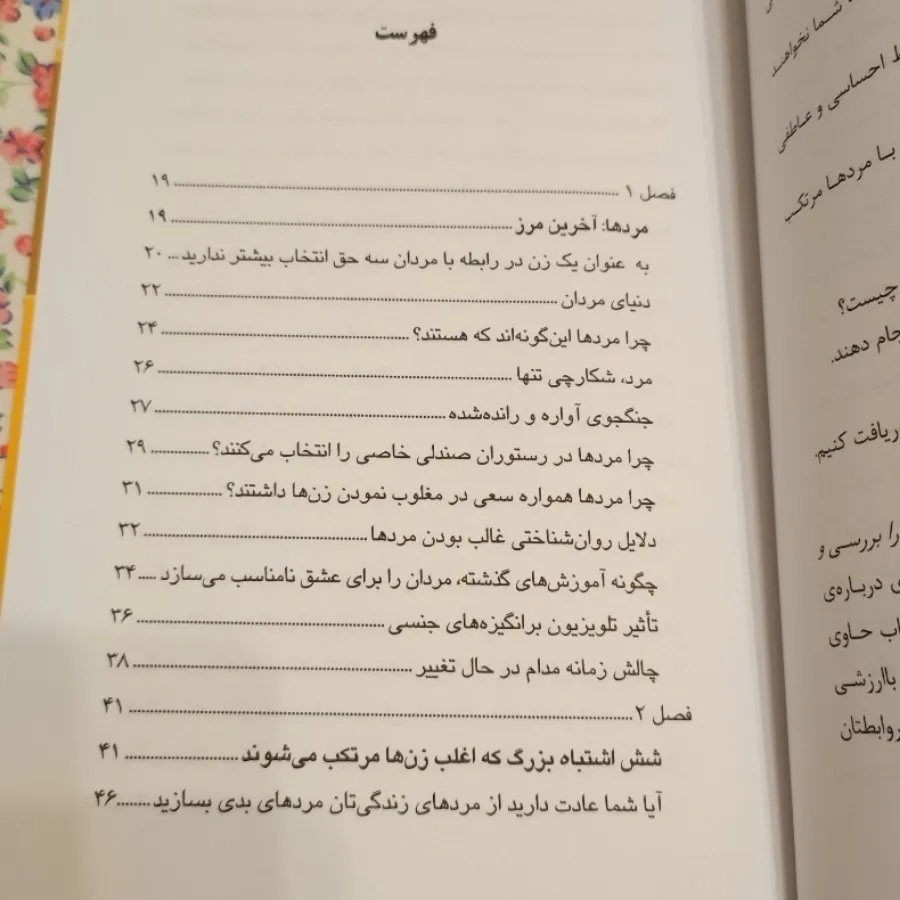 فهرست
فصل ۱ ........ ۱۹
مردها: آخرین مرز ........ ۱۹
به عنوان یک زن در رابطه با مردان سه حق انتخاب بیشتر ندارید ... ۲۰
دنیای مردان ........ ۲۲
چرا مردها این‌گونه‌اند که هستند؟ ........ ۲۴
مرد، شکارچی تنها ........ ۲۶
جنگجوی آواره و رانده‌شده ........ ۲۷
چرا مردها در رستوران صندلی خاصی را انتخاب می‌کنند؟ ........ ۲۹
چرا مردها همواره سعی در مغلوب نمودن زن‌ها داشتند؟ ........ ۳۱
دلایل روان‌شناختی غالب بودن مردها ........ ۳۲
چگونه آموزش‌های گذشته، مردان را برای عشق نامناسب می‌سازد ..... ۳۴
تأثیر تلویزیون برانگیزه‌های جنسی ........ ۳۶
چالش زمانه مدام در حال تغییر ........ ۳۸
فصل ۲ ........ ۴۱
شش اشتباه بزرگ که اغلب زن‌ها مرتکب می‌شوند ........ ۴۱
آیا شما عادت دارید از مردهای زندگی‌تان مردهای بدی بسازید ........ ۴۶
شما نخواهند
احساسی و عاطفی
با مردها مرتکب
چیست؟
دهند.
دریافت کنیم.
را بررسی و
درباره‌ی
حاوی
باارزشی
روابطتان